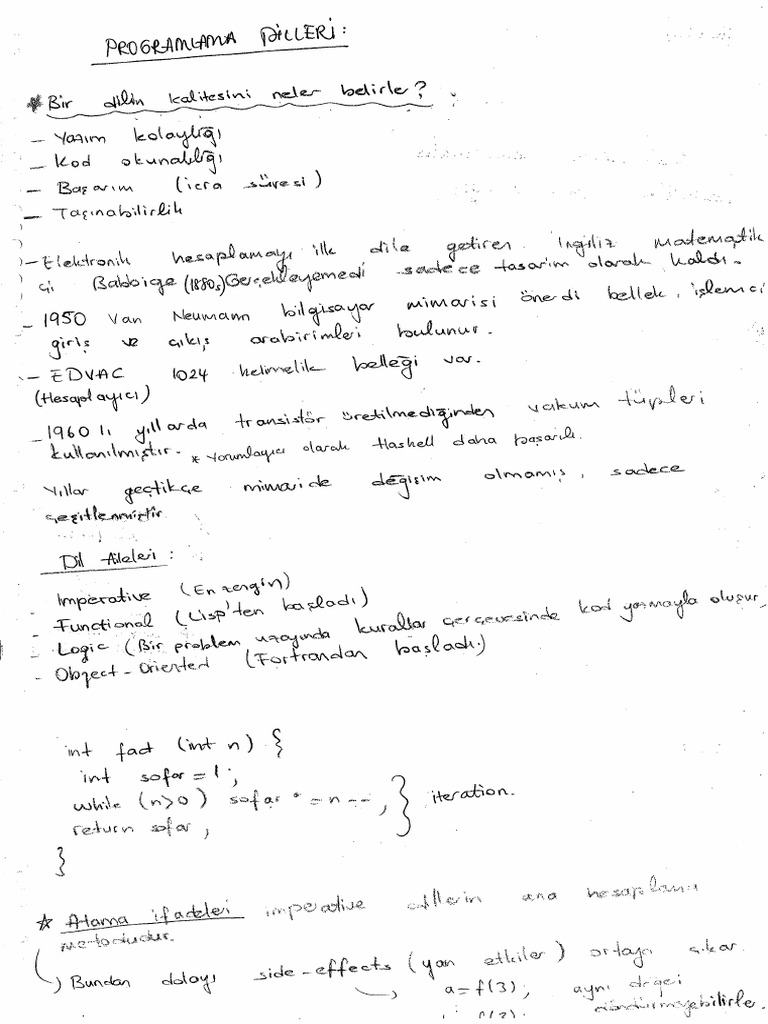 PROGRAMLAMA DİLLERİ:
* Bir dilin kalitesini neler belirle?
- Yazım kolaylığı
- Kod okunabılığı
- Başarım (icra süresi)
- Taşınabilirlik
- Elektronik hesaplamayı ilk dile getiren İngiliz matematik
çi Babbige (1880s) Gerçekleyemedi sadece tasarım olarak kaldı.
- 1950 Van Neumann bilgisayar mimarisi önerdi bellek, işlemci
giriş ve çıkış arabirimleri bulunur.
- EDVAC 1024 kelimelik belleği var.
(Hesaplayıcı)
- 1960 lı yıllarda transistör üretilmediğinden vakum tüpleri
kullanılmıştır. * Yorumlayıcı olarak Haskell daha başarılı.
Yıllar geçtikçe mimaride değişim olmamış, sadece
çeşitlenmiştir
Dil Aileleri :
- Imperative (En zengin)
- Functional (Lisp'ten başladı)
- Logic (Bir problem uzayında kurallar çerçevesinde kod yazmayla oluşur
- Object-Oriented (Fortrandan başladı.)
int fact (int n) {
int sofar = 1;
while (n>0) sofar *= n--; } iteration.
return sofar;
}
* Atama ifadeleri imperative dillerin ana hesaplama
metodudur.
Bundan dolayı side-effects (yan etkiler) ortaya çıkar.
a = f(3); aynı değeri
f(3); döndürmeyebilirler.